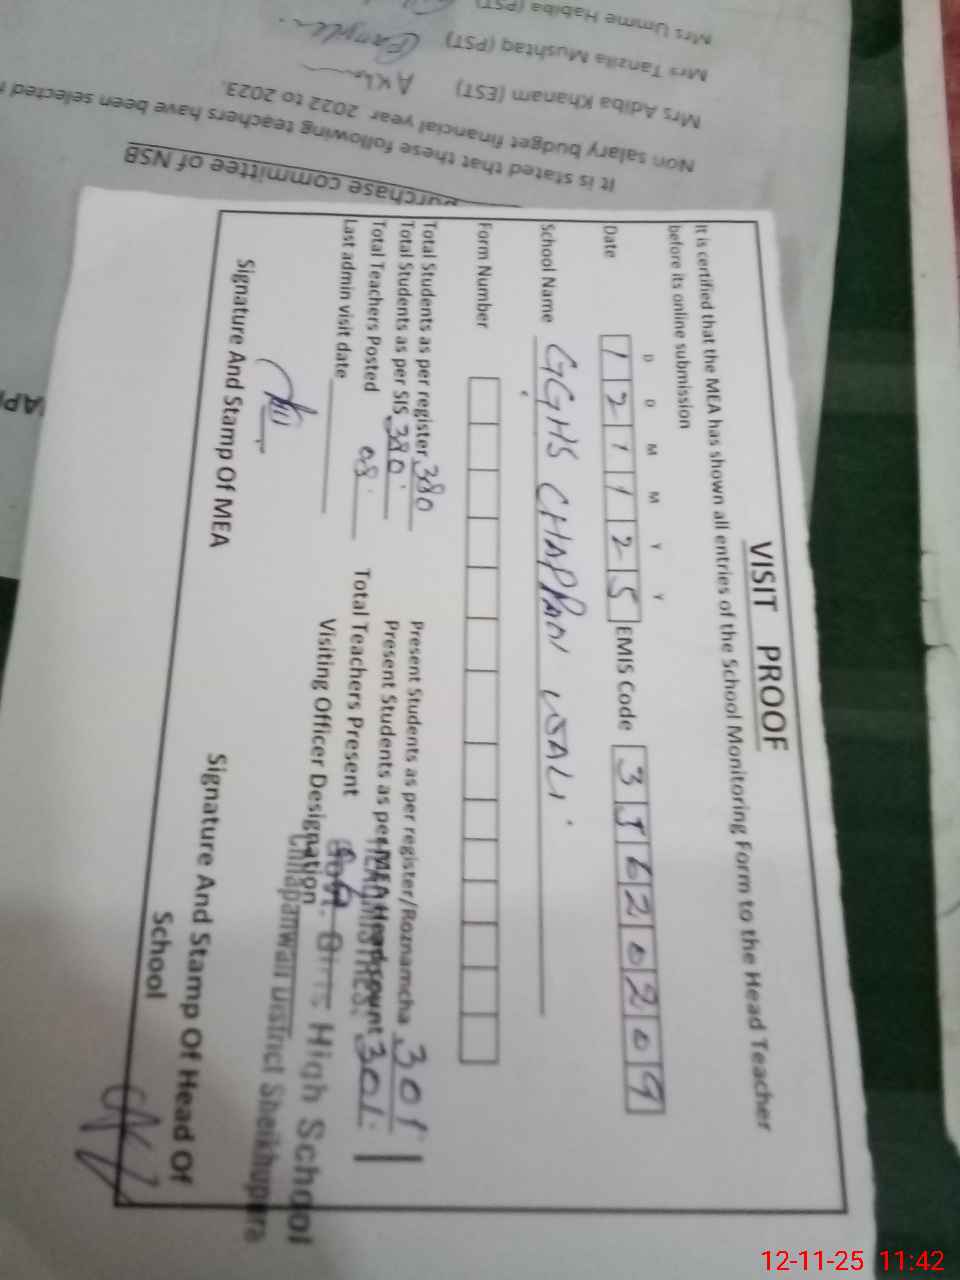 VISIT PROOF
It is certified that the MEA has shown all entries of the School Monitoring Form to the Head Teacher
before its online submission
D D M M Y Y
Date 1 2 1 1 2 5 EMIS Code 3 5 6 2 0 2 0 9
School Name GGHS CHAPPAN WALI
Form Number
Total Students as per register 380 Present Students as per register/Roznamcha 301
Total Students as per SIS 380 Present Students as per MEA Headcount 301
Total Teachers Posted 08 Total Teachers Present
Last admin visit date Visiting Officer Designation
HEADMISTRESS
Govt. Girls High School
Chhapanwali District Sheikhupura
Signature And Stamp Of MEA Signature And Stamp Of Head Of
School
Purchase committee of NSB
It is stated that these following teachers have been selected
Non salary budget financial year 2022 to 2023.
Mrs Adiba Khanam (EST)
Mrs Tanzila Mushtaq (PST)
Mrs Umme Habiba (PST)
12-11-25 11:42